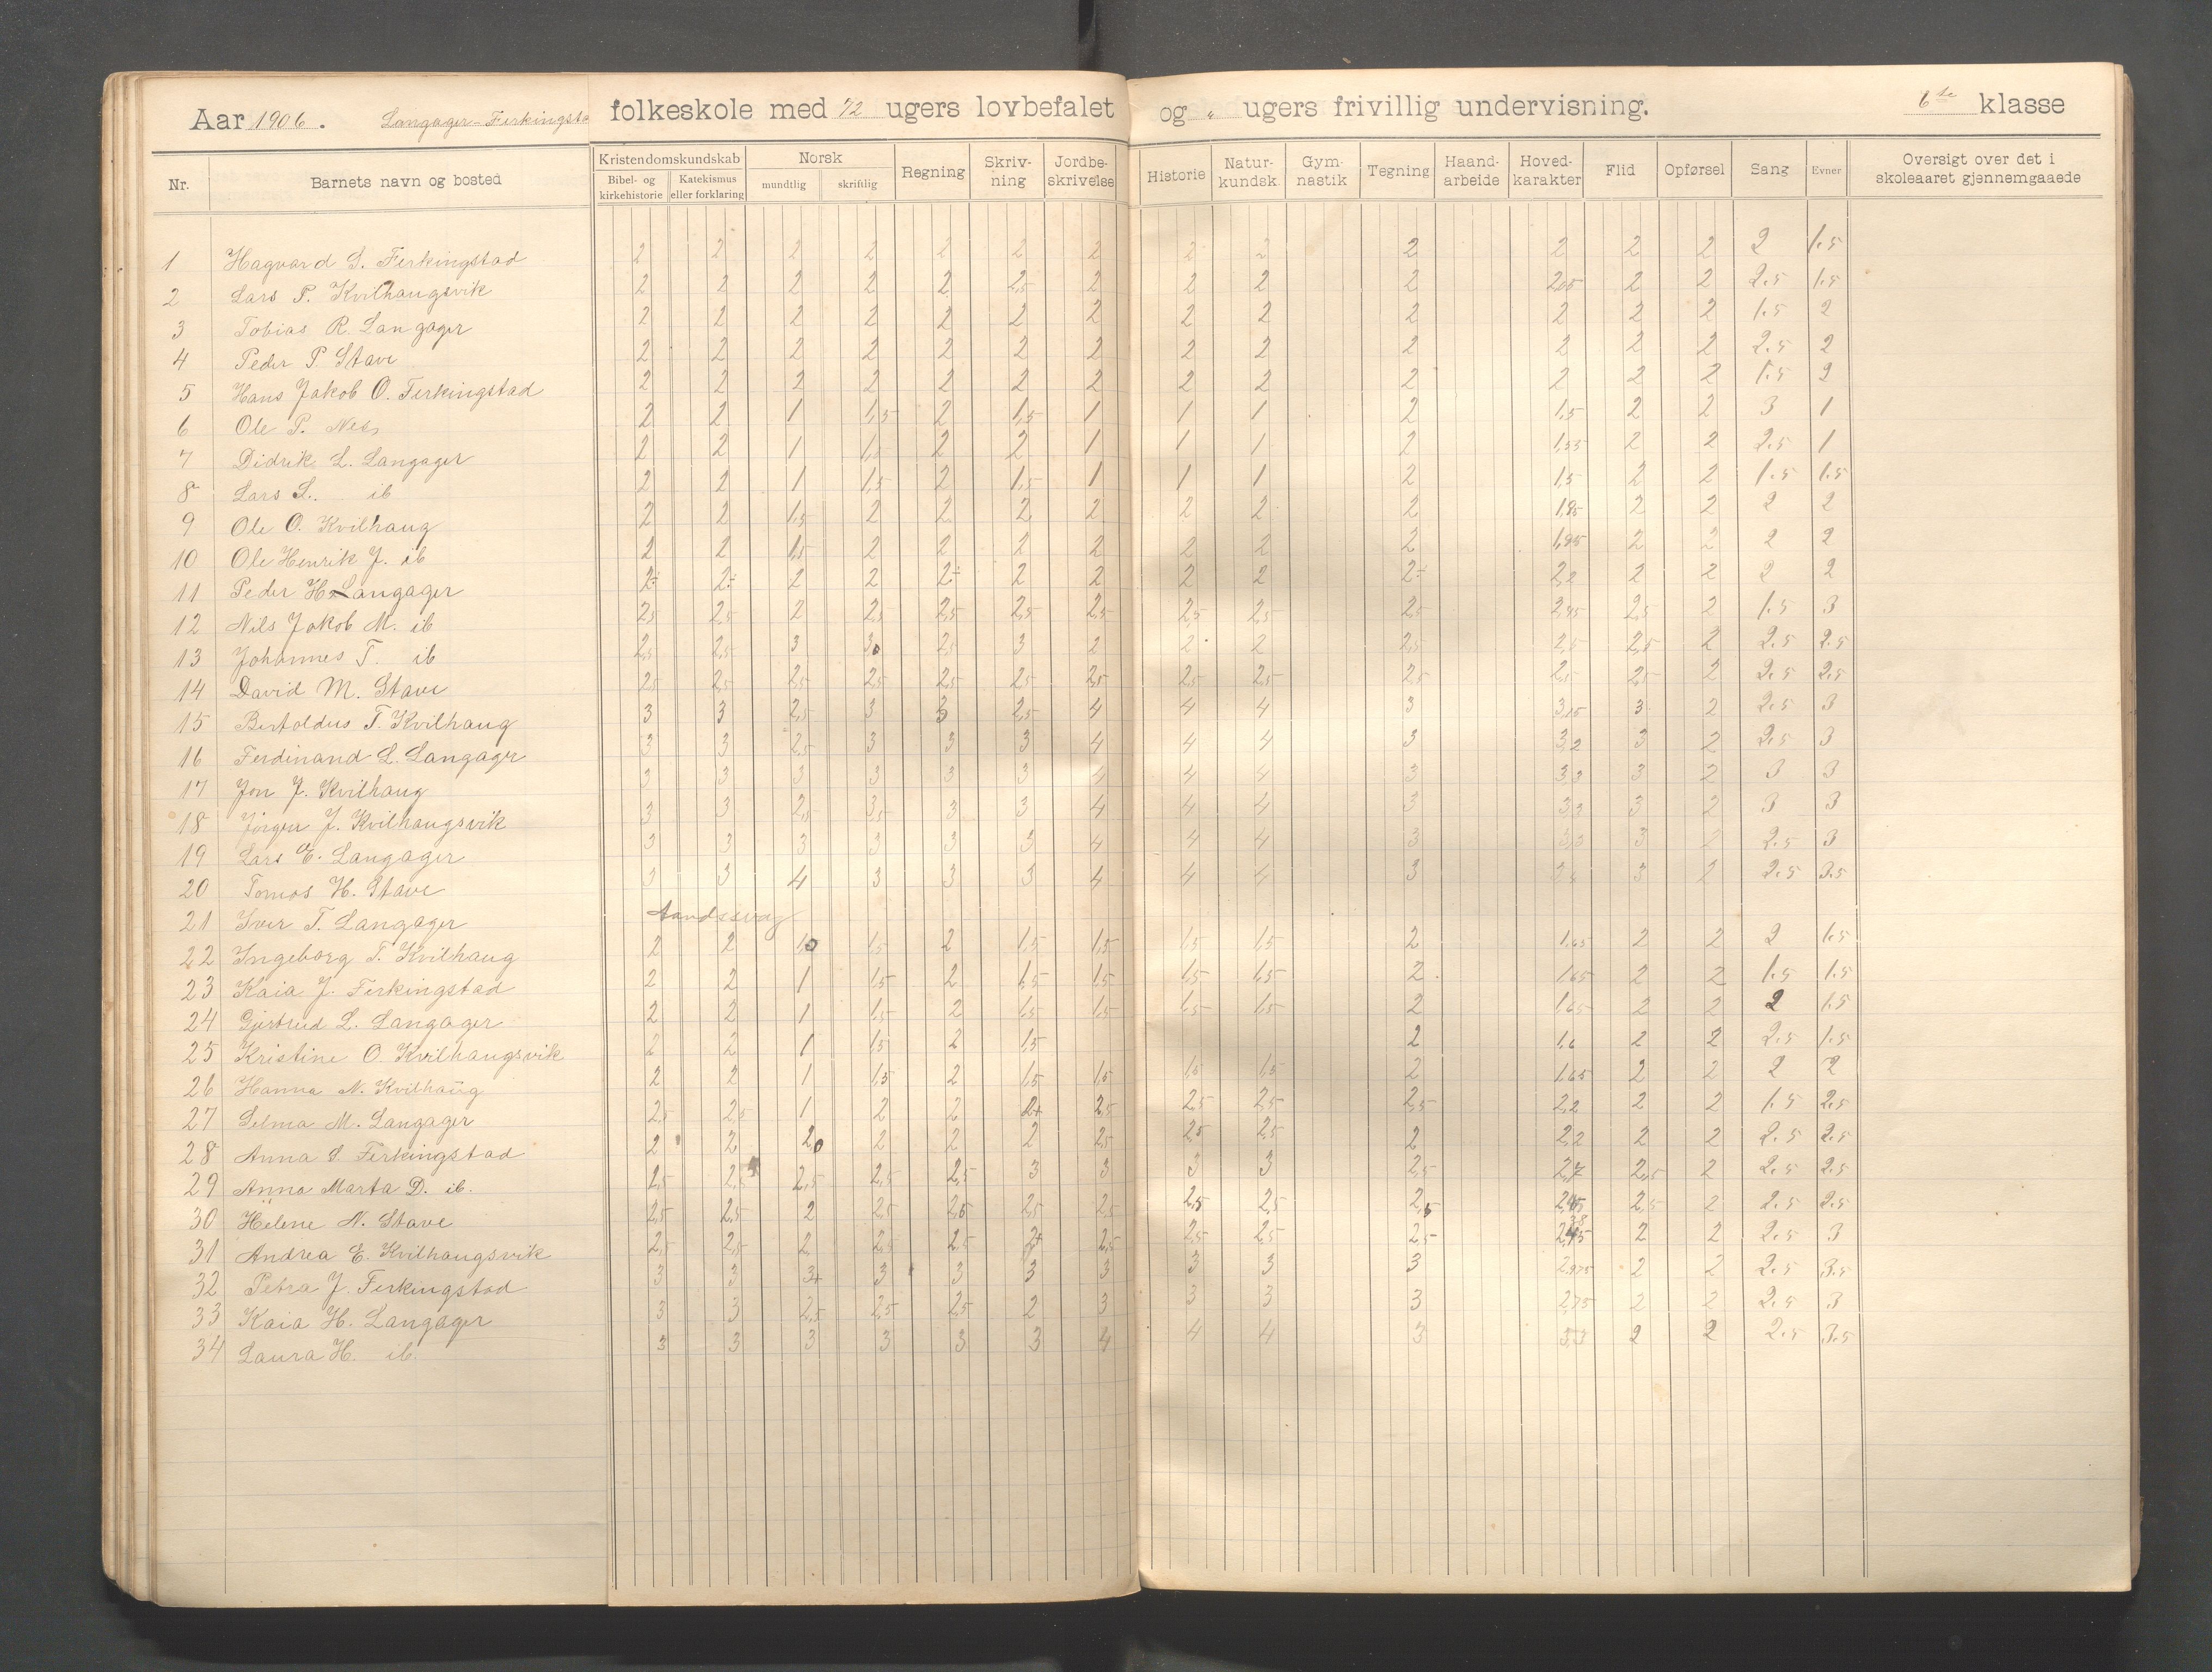 Aar 1906. Langager-Ferkingsta folkeskole med 12 ugers lovbefalet og " ugers frivillig undervisning. 6te klasse
Nr. Barnets navn og bosted Kristendomskundskab Bibel- og kirkehistorie Katekismus eller forklaring Norsk mundtlig skriftlig Regning Skriv-ning Jordbe-skrivelse Historie Natur-kundsk. Gym-nastik Tegning Haand-arbeide Hoved-karakter Flid Opførsel Sang Evner Oversigt over det i skoleaaret gjennemgaaede
1 Hagvard S. Ferkingstad 2 2 2 2 2 2 2 2 2 2 2 2 2 2 1.5
2 Lars P. Kvilhaugsvik 2 2 2 2 2 2,5 2 2 2 2 2,05 2 2 2.5 1.5
3 Tobias R. Langager 2 2 2 2 2 2 2 2 2 2 2 2 2 1.5 2
4 Peder P Stave 2 2 2 2 2 2 2 2 2 2 2 2 2 2.5 2
5 Hans Jakob O. Ferkingstad 2 2 2 2 2 2 2 2 2 2 2 2 2 1.5 2
6 Ole P. Nes 2 2 1 1,5 2 1,5 1 1 1 2 1,5 2 2 3 1
7 Didrik L. Langager 2 2 1 1,5 2 2 1 1 1 2 1,55 2 2 2.5 1
8 Lars L. ib 2 2 1 1,5 2 1,5 1 1 1 2 1,5 2 2 1.5 1.5
9 Ole O. Kvilhaug 2 2 1,5 2 2 2 2 2 2 2 1,95 2 2 2 2
10 Ole Henrik J. ib 2 2 1,5 2 2 2 2 2 2 2 1,95 2 2 2 2
11 Peder H. Langager 2÷ 2÷ 2 2 2÷ 2 2 2 2 2÷ 2,2 2 2 2 2
12 Nils Jakob M. ib 2,5 2,5 2 2,5 2,5 2,5 2,5 2,5 2,5 2,5 2,45 2,5 2 1.5 3
13 Johannes T. ib 2,5 2,5 3 3,0 2,5 3 2 2 2 2,5 2,5 2,5 2 2.5 2.5
14 David M. Stave 2,5 2,5 2,5 2,5 2,5 2,5 2,5 2,5 2,5 2,5 2,5 2,5 2 2.5 2.5
15 Bertoldus T. Kvilhaug 3 3 2,5 3 3 2,5 4 4 4 3 3,15 3 2 2.5 3
16 Ferdinand L. Langager 3 3 2,5 3 3 3 4 4 4 3 3,2 3 2 2.5 3
17 Jon J. Kvilhaug 3 3 3 3 3 3 4 4 4 3 3,3 3 2 3 3
18 Jörgen J. Kvilhaugsvik 3 3 2,5 3,5 3 3 4 4 4 3 3,3 3 2 3 3
19 Lars E. Langager 3 3 3 3 3 3 4 4 4 3 3,3 3 2 2.5 3
20 Tomas H. Stave 3 3 4 3 3 3 4 4 4 3 3 2 2.5 3.5
21 Iver T. Langager Aandssvag
22 Ingeborg T. Kvilhaug 2 2 1,0 1,5 2 1,5 1,5 1,5 1,5 2 1,65 2 2 2 1.5
23 Kaia J. Ferkingstad 2 2 1 1,5 2 1,5 1,5 1,5 1,5 2 1,65 2 2 1.5 1.5
24 Gjertrud L. Langager 2 2 1 1,5 2 1,5 1,5 1,5 1,5 2 1,65 2 2 2 1.5
25 Kristine O. Kvilhaugsvik 2 2 1 1,5 2 1,5 2 1,6 2 2 2.5 1.5
26 Hanna N. Kvilhaug 2 2 1 1,5 2 1,5 1,5 1,5 1,5 2 1,65 2 2 2 2
27 Selma M. Langager 2,5 2,5 1 2 2 2+ 2,5 2,5 2,5 2,5 2,2 2 2 1.5 2.5
28 Anna S Ferkingstad 2 2 2,0 2 2 2 2,5 2,5 2,5 2 2,2 2 2 2.5 2.5
29 Anna Marta D. ib. 2,5 2,5 2,5 2,5 2,5 3 3 3 3 2,5 2,7 2,5 2 2.5 2.5
30 Helene N. Stave 2,5 2,5 2 2,5 2,5 2,5 2,5 2,5 2,5 2,5 2,45 2,5 2 2.5 2.5
31 Andrea E. Kvilhaugsvik 2,5 2,5 2 2,5 2,5 2+ 2,5 2,5 2,5 2,5 2,45 2 2 2.5 3
32 Petra J. Ferkingstad 3 3 3+ 3 3 3 3 3 3 3 2,975 2 2 2.5 3.5
33 Kaia H. Langager 3 3 2,5 2,5 2,5 2 3 3 3 3 2,75 2 2 2.5 3
34 Laura H. ib. 3 3 3 3 3 3 4 4 4 3 3,3 2 2 2.5 3.5